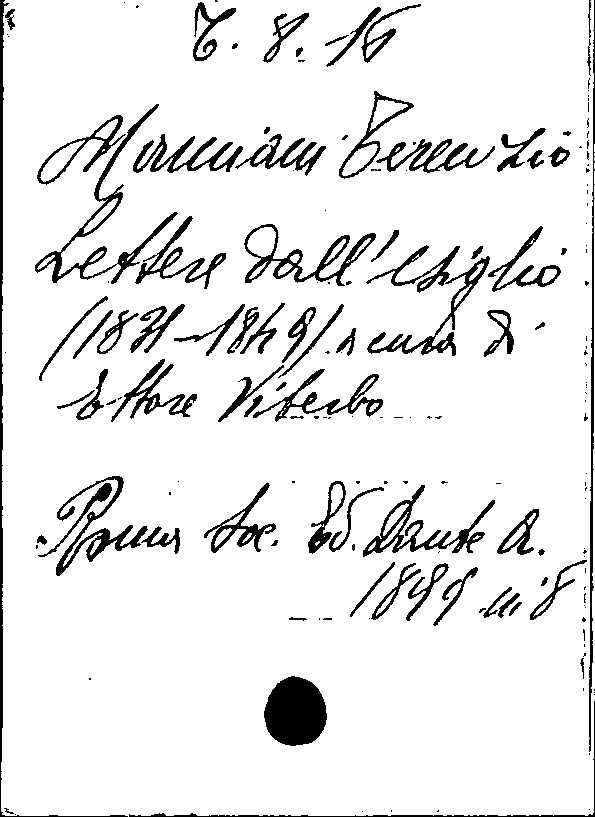 T. 8. 16
Mamiani Terenzio
Lettere dall'esiglio
(1831-1849) a cura di
Ettore Viterbo
Roma Soc. Ed. Dante A.
1899 in 8